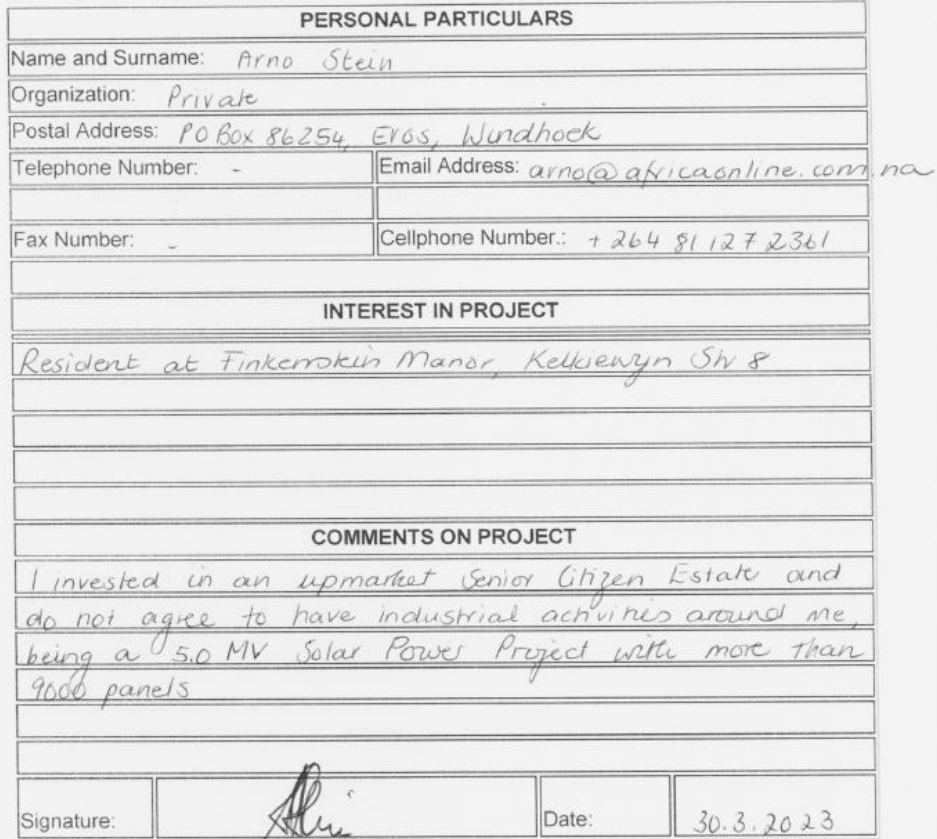 PERSONAL PARTICULARS
Name and Surname: Arno Stein
Organization: Private
Postal Address: PO Box 86254, Eros, Windhoek
Telephone Number: - Email Address: arno@africaonline.com.na
Fax Number: - Cellphone Number.: +264 81 127 2361
INTEREST IN PROJECT
Resident at Finkenstein Manor, Kelkiewyn Str 8
COMMENTS ON PROJECT
I invested in an upmarket Senior Citizen Estate and
do not agree to have industrial activities around me,
being a 5.0 MV Solar Power Project with more than
9000 panels
Signature: Date: 30.3.2023